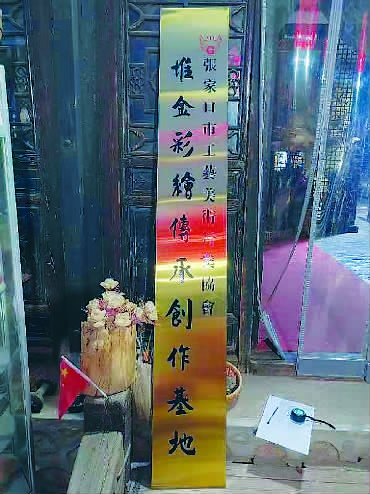 張家口市工藝美術協會
堆金彩繪傳承創作基地